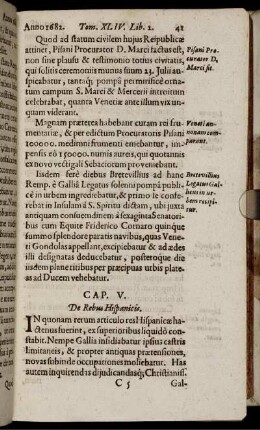 Anno 1682. Tom. XLIV. Lib. 2. 41
Quod ad statum civilem hujus Reipublicæ
attinet, Pisani Procurator D. Marci factus est,
non sine plausu & testimonio totius civitatis,
qui solitis ceremoniis munus suum 23. Julii au-
spicabatur, tantaq; pompâ per mirifice orna-
tum campum S. Marci & Mercerii introitum
celebrabat, quanta Venetiæ ante illum vix un-
quam viderant.
Pisani Pro-
curator D,
Marci fit.
Magnam præterea habebant curam rei fru-
mentariæ, & per edictum Procuratoris Pisani
100000. medimni frumenti emebantur, im-
pensis 60 15000. numis aureis, qui quotannis
ex novo vectigali Sebaciorum proveniebant.
Veneti an-
nonam com-
parant.
Iisdem ferè diebus Bretevillius ad hanc
Remp. è Galliâ Legatus solenni pompâ publi-
cè in urbem ingrediebatur, & primo se confe-
rebat in Insulam S. Spirito dictam, ubi juxta
antiquam consuetudinem à sexaginta Senatori-
bus cum Equite Friderico Cornaro quinque
summo splendore paratis navibus, quas Vene-
ti Gondolas appellant, excipiebatur & ad ædes
illi designatas deducebatur, posteroque die
iisdem planè ritibus per præcipuas urbis plate-
as ad Ducem vehebatur.
Bretevillius
Legatus Gal-
licus in ur-
bem recipi-
tur.
CAP. V.
De Rebus Hispanicis.
IN quonam rerum articulo res Hispanicæ ha-
ctenus fuerint, ex superioribus liquidò con-
stabit. Nempe Gallia insidiabatur ipsius castris
limitaneis, & propter antiquas prætensiones,
novas subinde occupationes moliebatur. Has
autem inquirendas dijudicandasq; Christianis.
C 5 Gal-